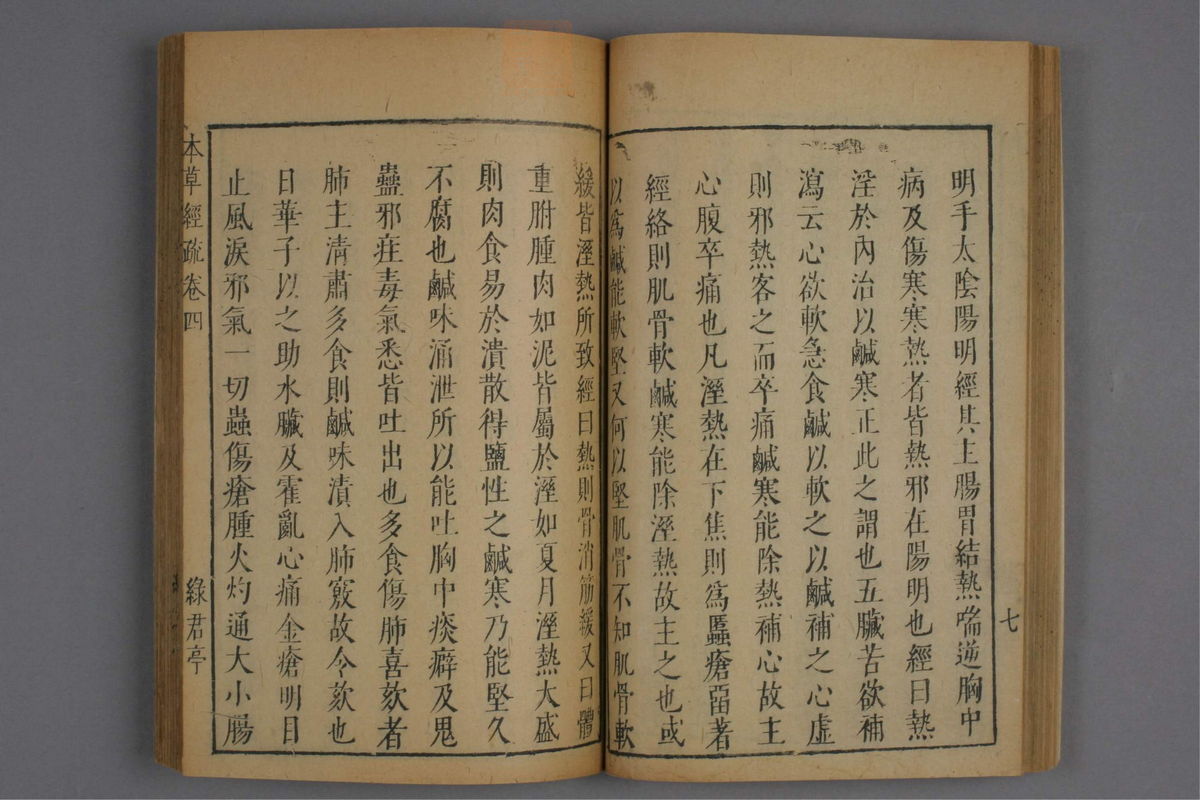 明手太陰陽明經其主腸胃結熱喘逆胸中
病及傷寒寒熱者皆熱邪在陽明也經曰熱
淫於內治以鹹寒正此之謂也五臟苦欲補
瀉云心欲軟急食鹹以軟之以鹹補之心虛
則邪熱客之而卒痛鹹寒能除熱補心故主
心腹卒痛也凡溼熱在下焦則爲䘌瘡畱著
經絡則肌骨軟鹹寒能除溼熱故主之也或
以爲鹹能軟堅又何以堅肌骨不知肌骨軟
七
緩皆溼熱所致經曰熱則骨消筋緩又曰體
重胕腫肉如泥皆屬於溼如夏月溼熱大盛
則肉食易於潰散得鹽性之鹹寒乃能堅久
不腐也鹹味涌泄所以能吐胸中痰癖及鬼
蠱邪疰毒氣悉皆吐出也多食傷肺喜欬者
肺主清肅多食則鹹味漬入肺竅故令欬也
日華子以之助水臟及霍亂心痛金瘡明目
止風淚邪氣一切蟲傷瘡腫火灼通大小腸
本草經疏卷四
綠君亭